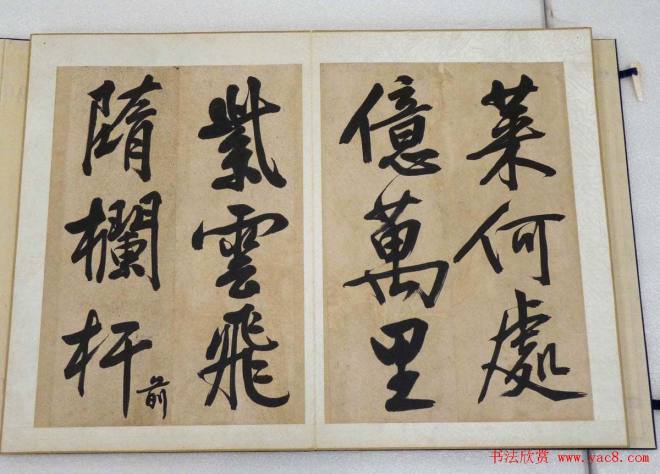 萊何處
億萬里
紫雲飛
隋欄杆
前
书法欣赏 www.yac8.com